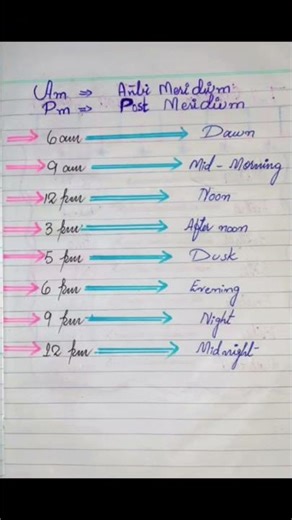 Am ⇒ Anti Meridium.
Pm ⇒ Post Meridium
6 am → Dawn
9 am → Mid - Morning
12 pm → Noon
3 pm → After noon
5 pm → Dusk
6 pm → Evening
9 pm → Night
12 pm → Midnight